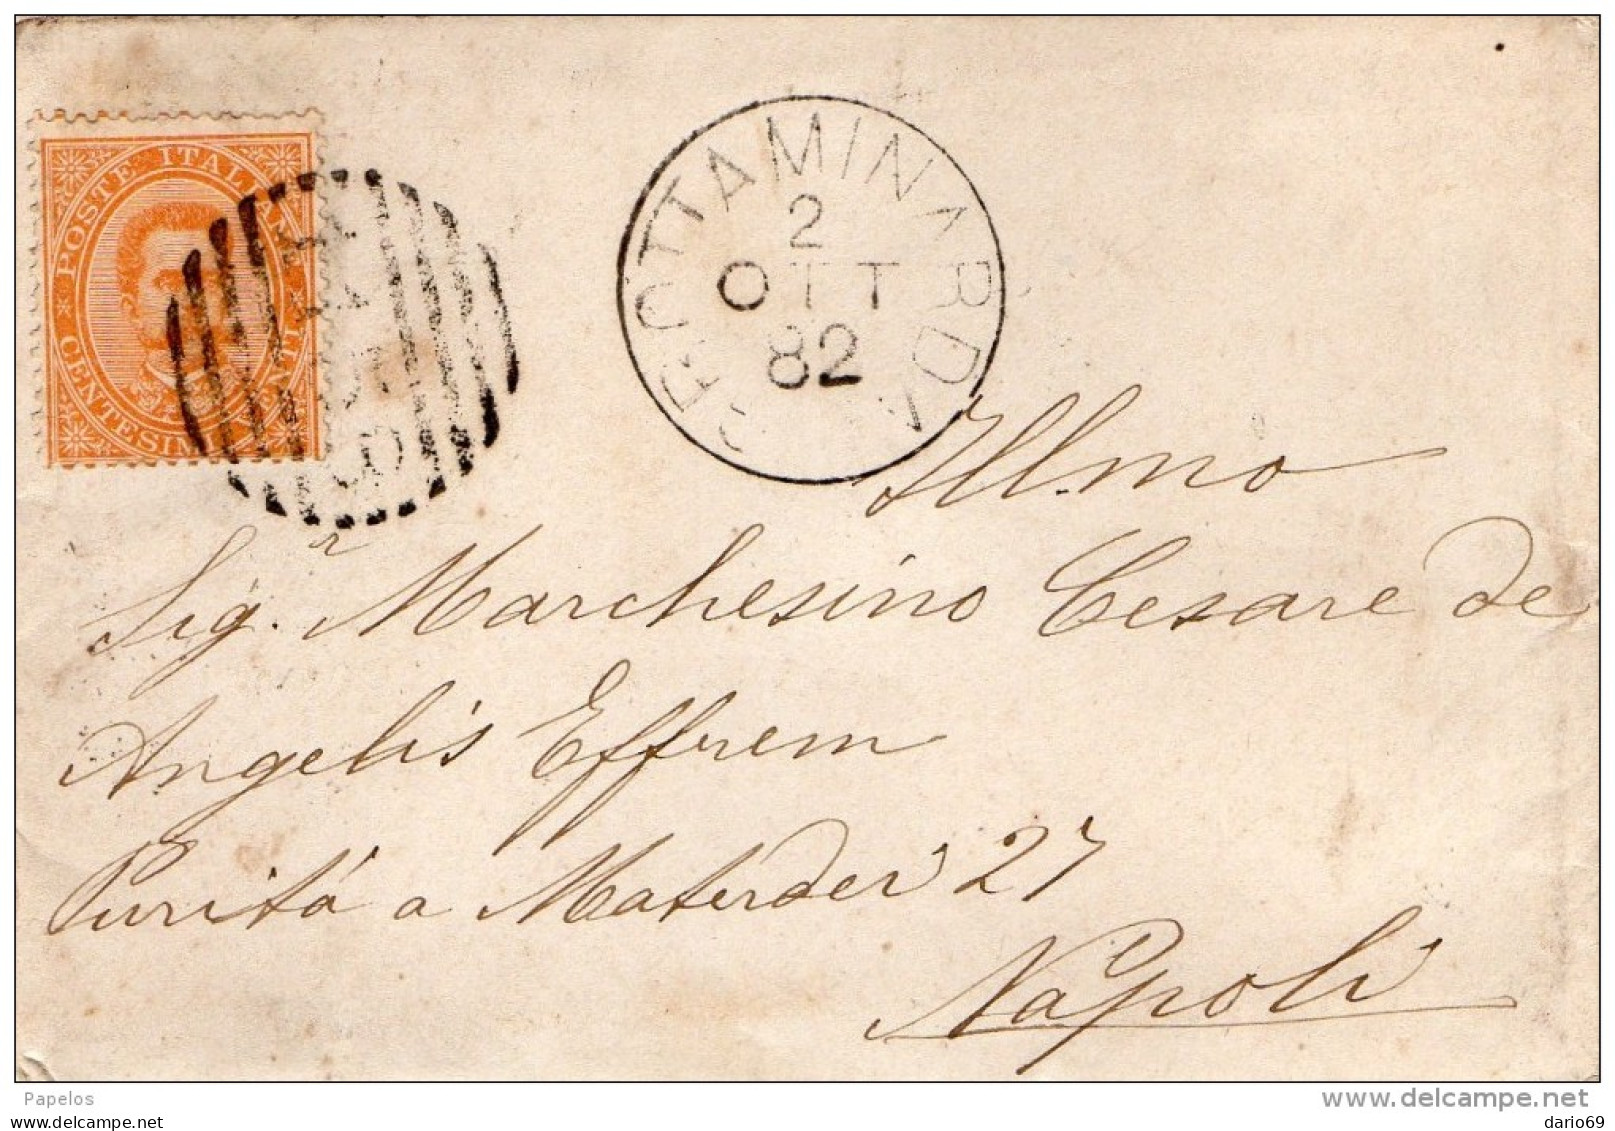 POSTE ITALIANE
CENTESIMI VENTI
GROTTAMINARDA
2
OTT
82
Illmo
Sigr. Marchesino Cesare de
Angelis Effrem
Purità a Materdei 27
Napoli
Papelos
www.delcampe.net
dario69